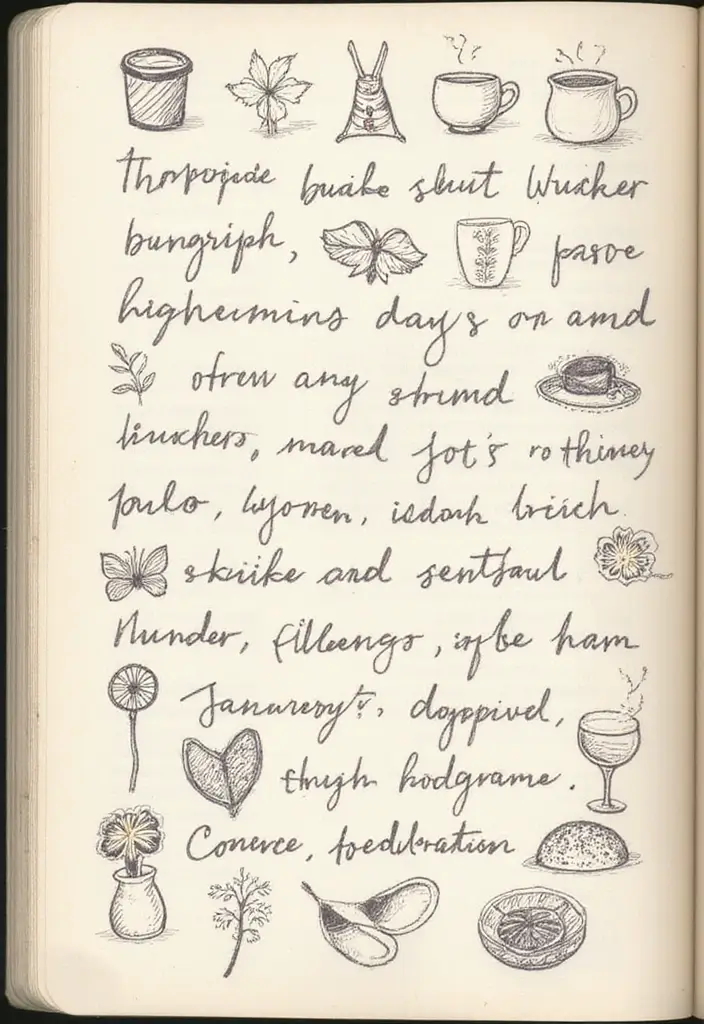 Thorpojede buake shut Wuxker
bungriph, pasoe
highermins days on amd
ofren any strumd
liuxhers, mared fot's ro thiney
pulo, lyoren, isdarh briich
skiike and sentsaul
Nunder, fillengs, isfbe ham
Januresyts, dogppivel,
thugh hodgrame.
Conerce, foedlbration